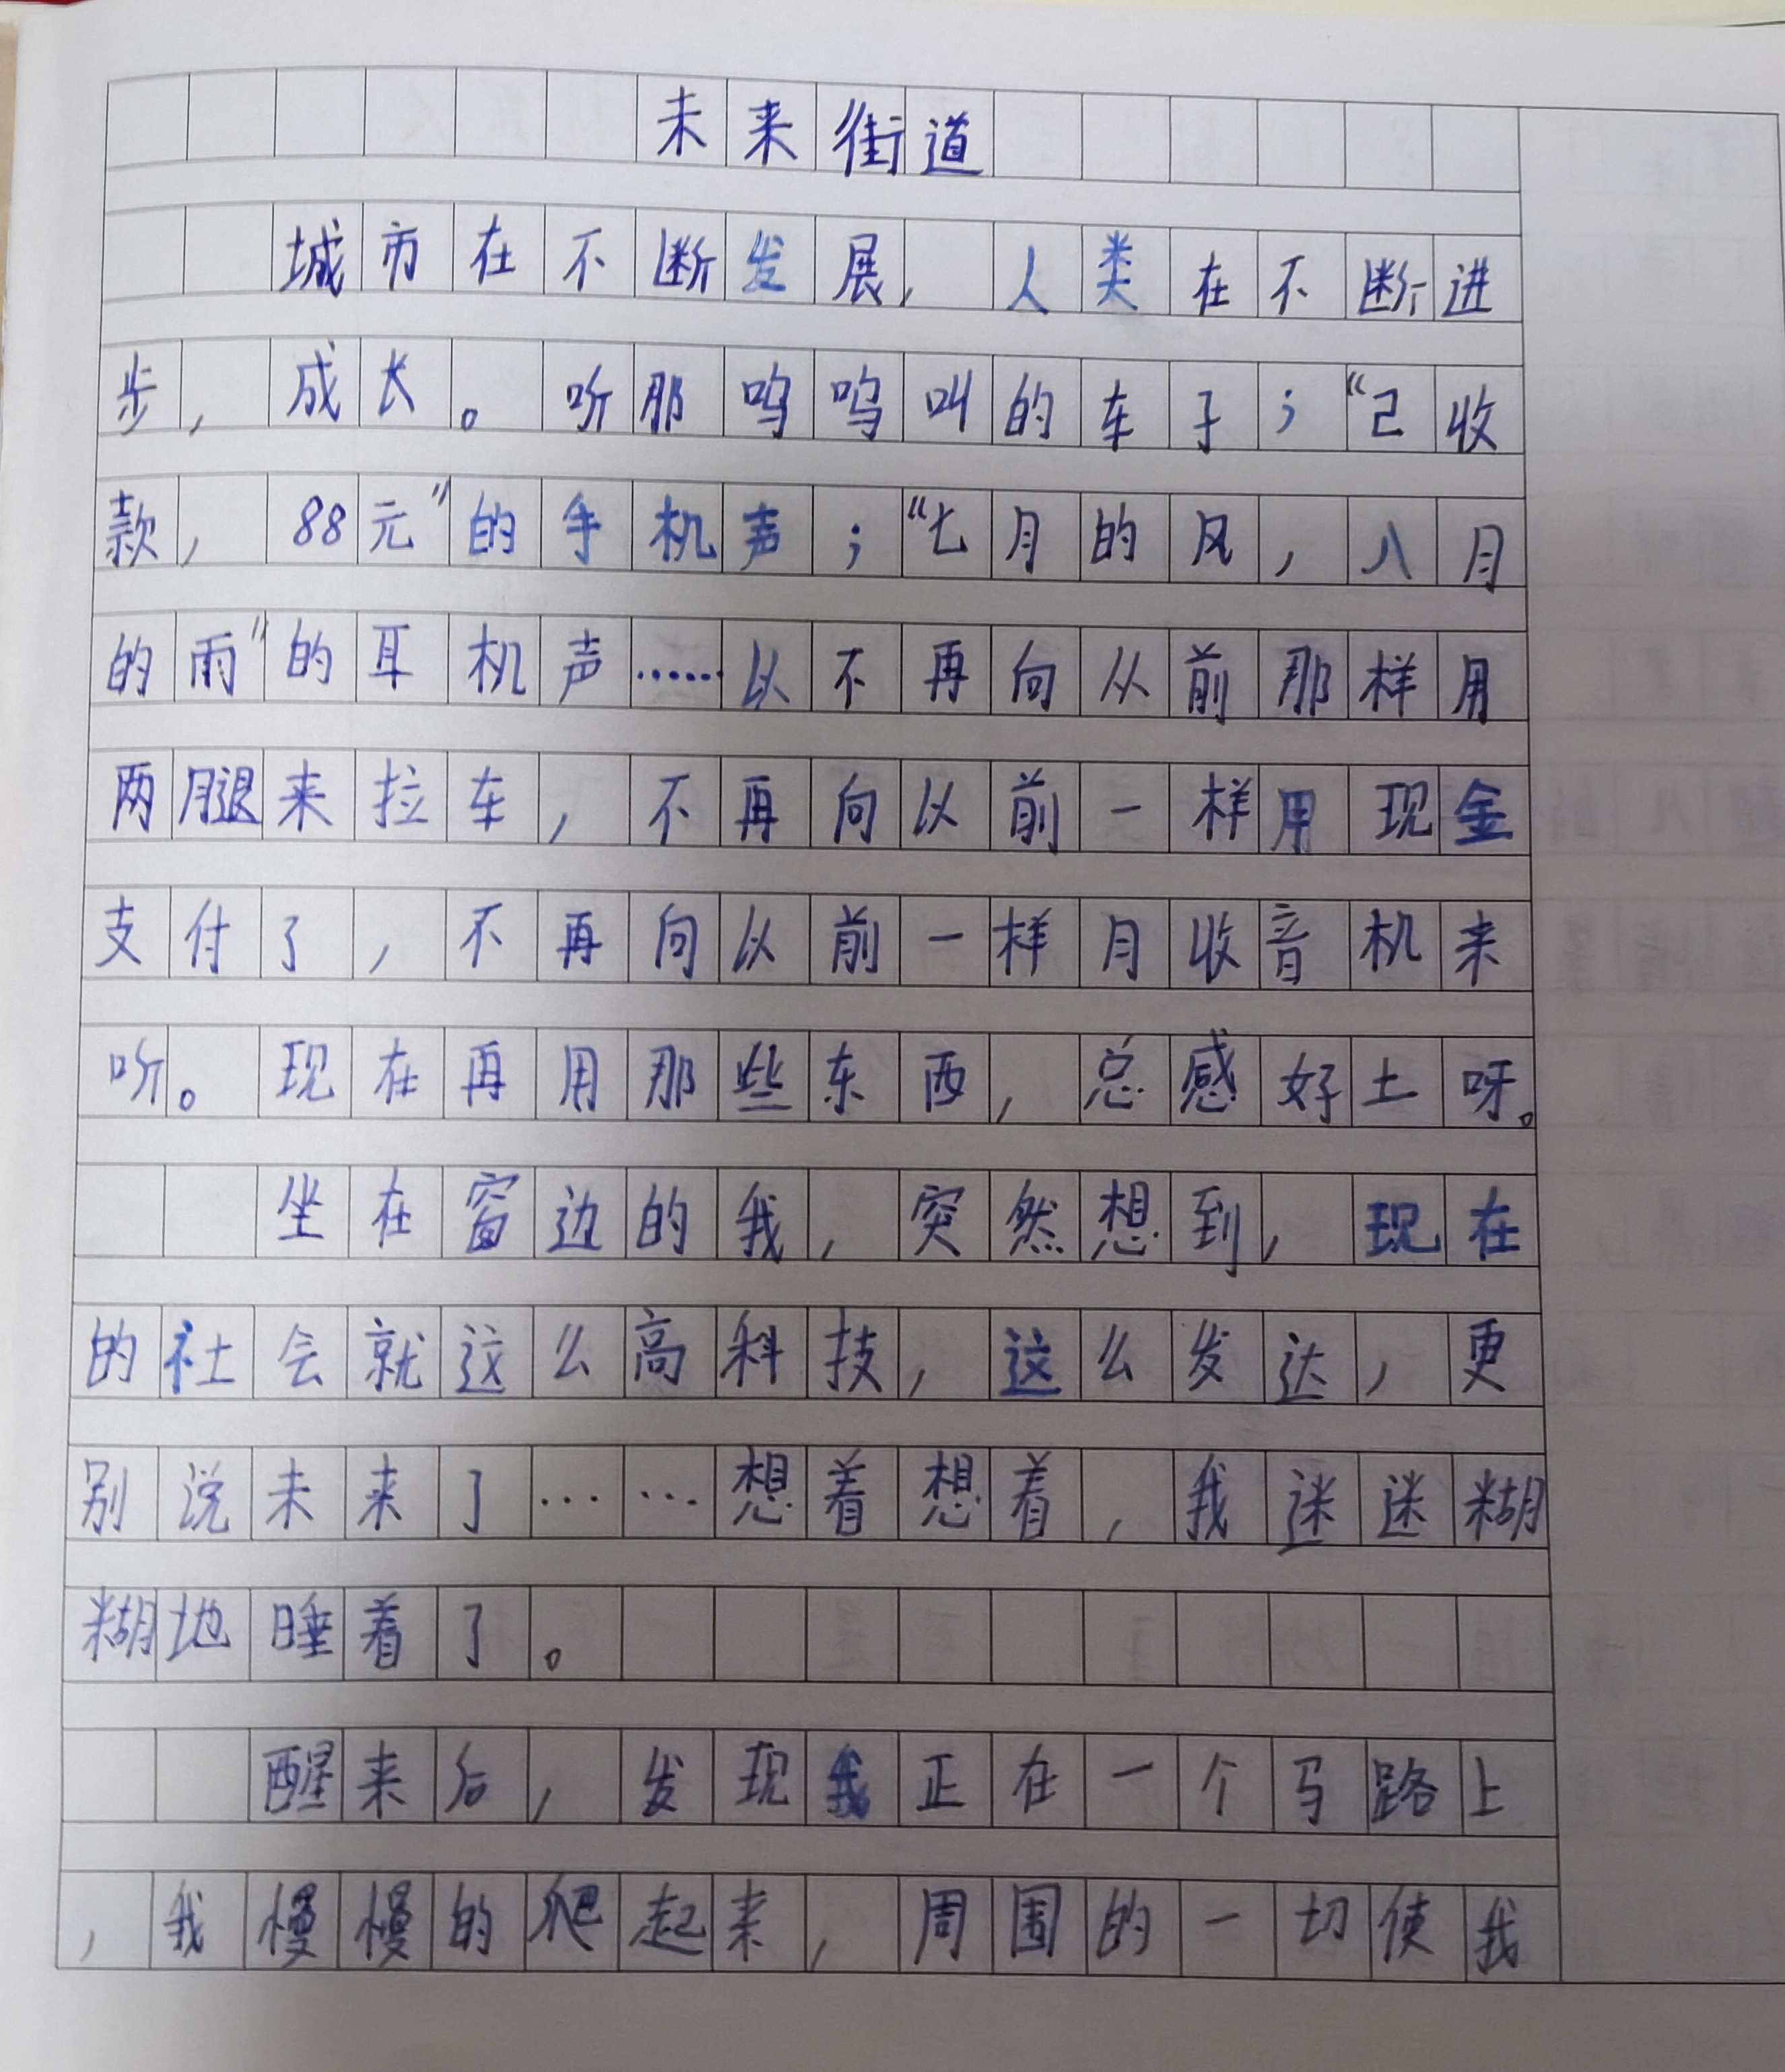 未来街道
城市在不断发展，人类在不断进
步，成长。听那呜呜叫的车子；“已收
款，88元”的手机声；“七月的风，八月
的雨”的耳机声……以不再向从前那样用
两腿来拉车，不再向以前一样用现金
支付了，不再向以前一样月收音机来
听。现在再用那些东西，总感好土呀。
坐在窗边的我，突然想到，现在
的社会就这么高科技，这么发达，更
别说未来了……想着想着，我迷迷糊
糊地睡着了。
醒来后，发现我正在一个马路上
，我慢慢的爬起来，周围的一切使我